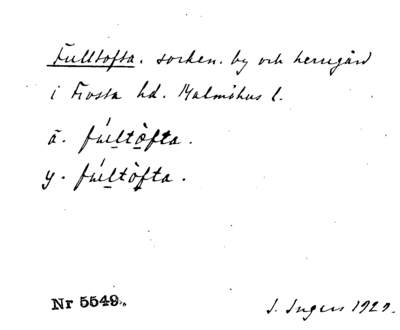 Fulltofta. socken. by och herregård
i Frosta hd. Malmöhus l.
ä. fúltòfta.
y. fúltòfta.
Nr 5549.
I. Ingers 1929.